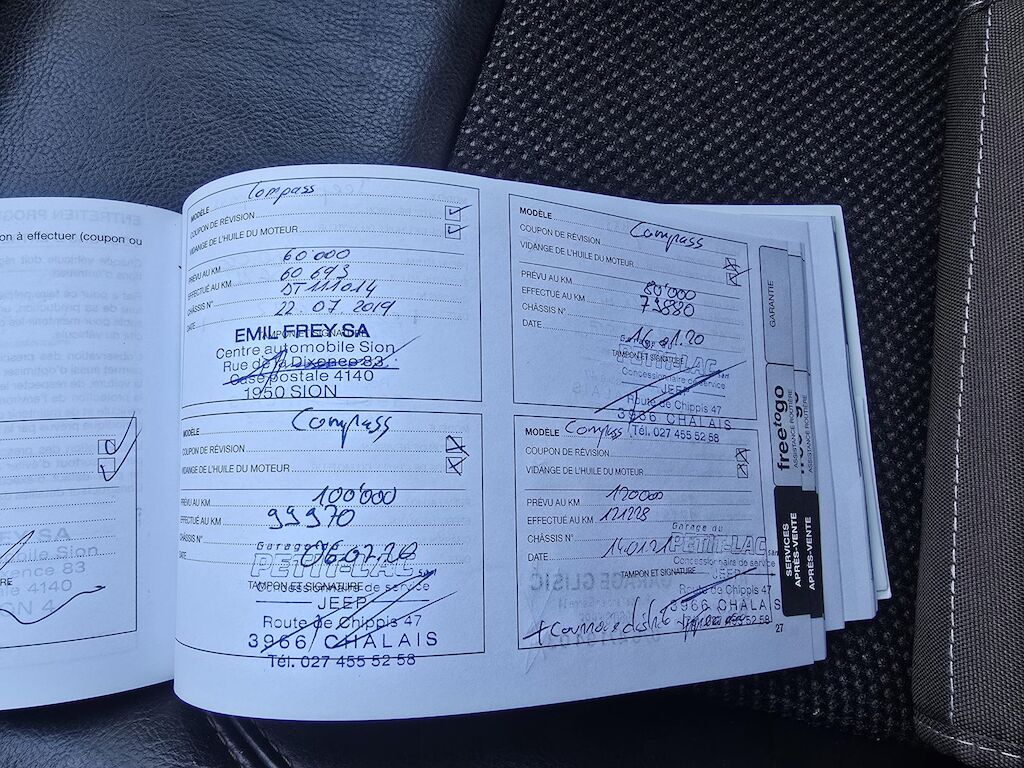 on à effectuer (coupon ou
MODÈLE Compass
COUPON DE RÉVISION
VIDANGE DE L'HUILE DU MOTEUR
PRÉVU AU KM 60'000
EFFECTUÉ AU KM 60 693
CHÂSSIS N° DT111014
DATE 22.07.2019
EMIL FREY SA
TAMPON ET SIGNATURE
Centre automobile Sion
Rue de la Dixence 83
Case postale 4140
1950 SION
MODÈLE Compass
COUPON DE RÉVISION
VIDANGE DE L'HUILE DU MOTEUR
PRÉVU AU KM 80'000
EFFECTUÉ AU KM 79880
CHÂSSIS N°
DATE
PETIT-LAC sàrl
TAMPON ET SIGNATURE
Concessionnaire de service
JEEP
Route de Chippis 47
3966 CHALAIS
Tél. 027 455 52 58
MODÈLE Compass
COUPON DE RÉVISION
VIDANGE DE L'HUILE DU MOTEUR
PRÉVU AU KM 100'000
EFFECTUÉ AU KM 99970
CHÂSSIS N°
DATE 06.07.20
Garage du
PETIT-LAC sàrl
TAMPON ET SIGNATURE
Concessionnaire de service
JEEP
Route de Chippis 47
3966 CHALAIS
Tél. 027 455 52 58
MODÈLE Compass
COUPON DE RÉVISION
VIDANGE DE L'HUILE DU MOTEUR
PRÉVU AU KM 120000
EFFECTUÉ AU KM 121228
CHÂSSIS N°
DATE 14.01.21
Garage du
PETIT-LAC sàrl
Concessionnaire de service
TAMPON ET SIGNATURE
JEEP
Route de Chippis 47
3966 CHALAIS
27
GARANTIE
freetogo
ASSISTANCE ROUTIÈRE
SERVICES
APRÈS-VENTE
APRÈS-VENTE